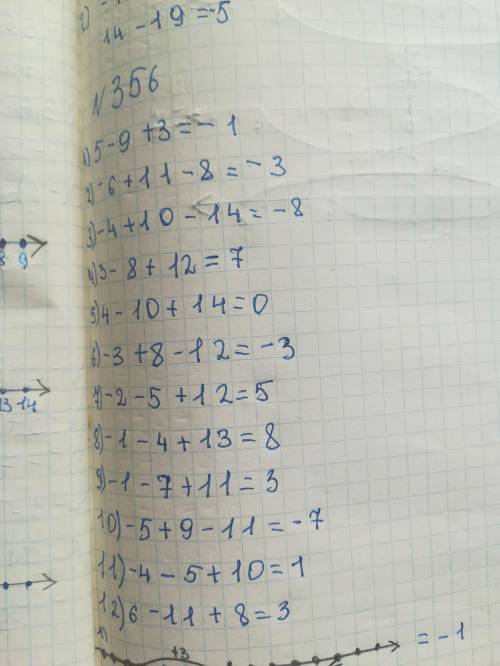 14 - 19 = -5
N 356
1) 5 - 9 + 3 = - 1
2) -6 + 11 - 8 = - 3
3) -4 + 10 - 14 = - 8
4) 3 - 8 + 12 = 7
5) 4 - 10 + 14 = 0
6) -3 + 8 - 12 = -3
7) -2 - 5 + 12 = 5
8) -1 - 4 + 13 = 8
9) -1 - 7 + 11 = 3
10) -5 + 9 - 11 = -7
11) -4 - 5 + 10 = 1
12) 6 - 11 + 8 = 3
1) +3 = - 1
8 9
13 14